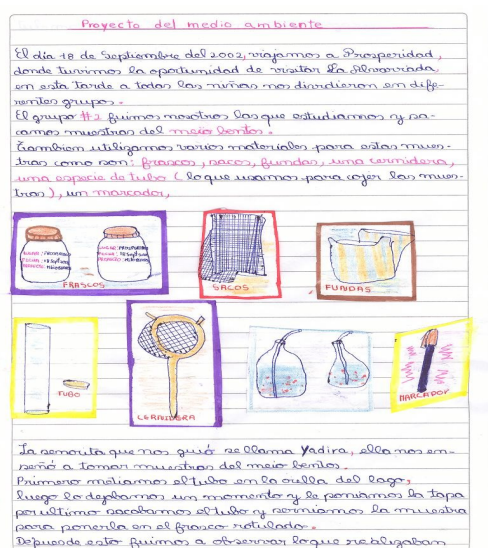 Proyecto del medio ambiente
El día 18 de Septiembre del 2002, viajamos a Prosperidad,
donde tuvimos la oportunidad de visitar La Alvarriada,
en esta tarde a todas las niñas nos dividieron en dife-
rentes grupos.
El grupo #2 fuimos nosotros las que estudiamos y sa-
camos muestras del meio bentos.
Tambien utilizamos varios materiales para estas mues-
tras como son: frascos, sacos, fundas, una cernidera,
una especie de tubo (lo que usamos para cojer las mues-
tras), un marcador,
FRASCOS
SACOS
FUNDAS
TUBO
CERNIDERA
MARCADOR
La señorita que nos guió se llama Yadira, ella nos en-
señó a tomar muestras del meio bentos.
Primero metiamos el tubo en la orilla del lago,
luego lo dejabamos un momento y le poniamos la tapa
por ultimo sacabamos el tubo y serniamos la muestra
para ponerla en el frasco rotulado.
Depues de esto fuimos a observar lo que realizaban